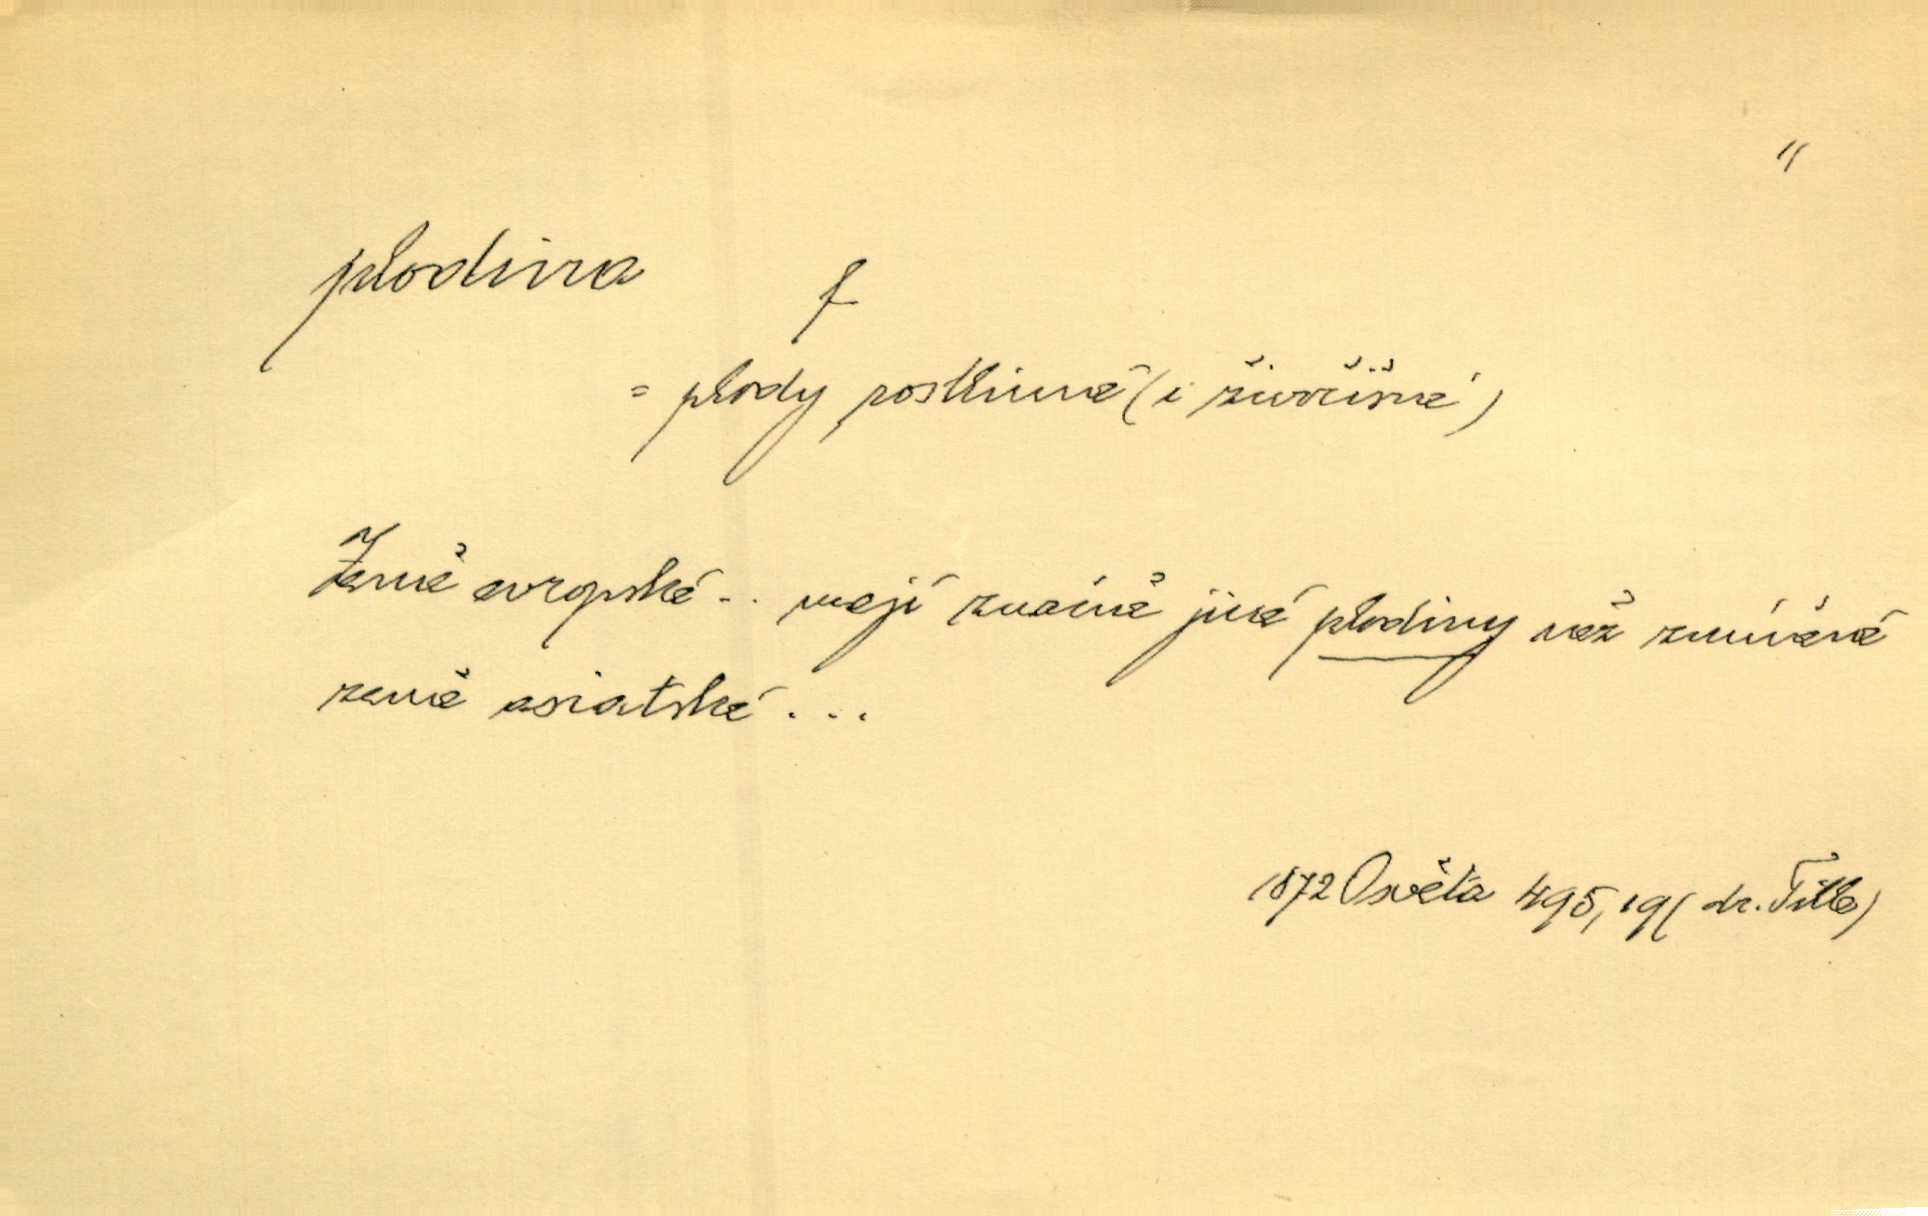 "
plodina f
= plody rostlinné (i živočišné)
Země evropské .. mají značně jiné plodiny než zmíněné
země asiatské ...
1872 Osvěta 495,19 (dr. Tille)